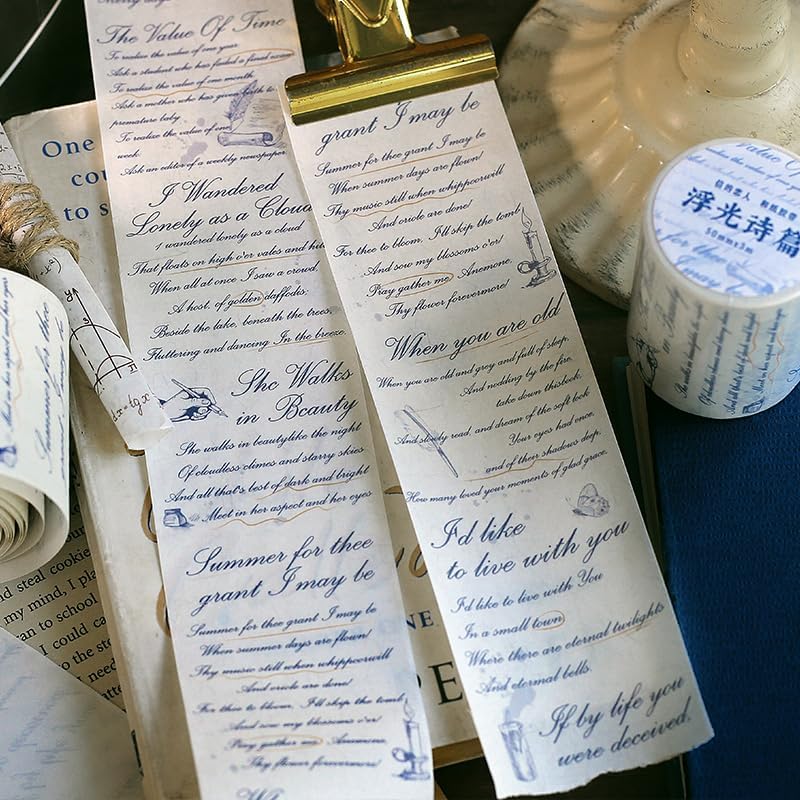 Merry days
The Value Of Time
To realize the value of one year
Ask a student who has failed a final exam
To realize the value of one month
Ask a mother who has given birth to
premature baby.
To realize the value of one
week.
Ask an editor of a weekly newspaper
I Wandered
Lonely as a Cloud
I wandered lonely as a cloud
That floats on high o'er vales and
When all at once I saw a crowd.
A host, of golden daffodis.
Beside the lake, beneath the trees,
Fluttering and dancing In the breeze.
She Walks
in Beauty
She walks in beautylike the night
Of cloudless climes and starry skies
And all that's best of dark and bright
Meet in her aspect and her eyes
Summer for thee
grant I may be
Summer for thee grant I may be
When summer days are flown!
Thy music still when whippoorwill
And oriole are done!
For thee to bloom, I'll skip the tomb
And sow my blossoms o'er!
Pray gather me Anemone.
Thy flower forevermore!
grant I may be
Summer for thee grant I may be
When summer days are flown!
Thy music still when whippoorwill
And oriole are done!
For thee to bloom, I'll skip the tomb
And sow my blossoms o'er!
Pray gather me Anemone.
Thy flower forevermore!
When you are old
When you are old and grey and full of sleep,
And nodding by the fire,
take down thisbook,
And slowly read, and dream of the soft look
Your eyes had once,
and of their shadows deep,
How many loved your moments of glad grace,
I'd like
to live with you
I'd like to live with You
In a small town
Where there are eternal twilights
And eternal bells.
If by life you
were deceived,
信的恋人 和纸胶带
浮光诗篇
50mm×3m
One
cou
to s
dx=tgx
Meet in her aspect and her eyes
Summer for thee
nd steal cookie
my mind, I pla
an to school
I could ca
I need
NE
DE